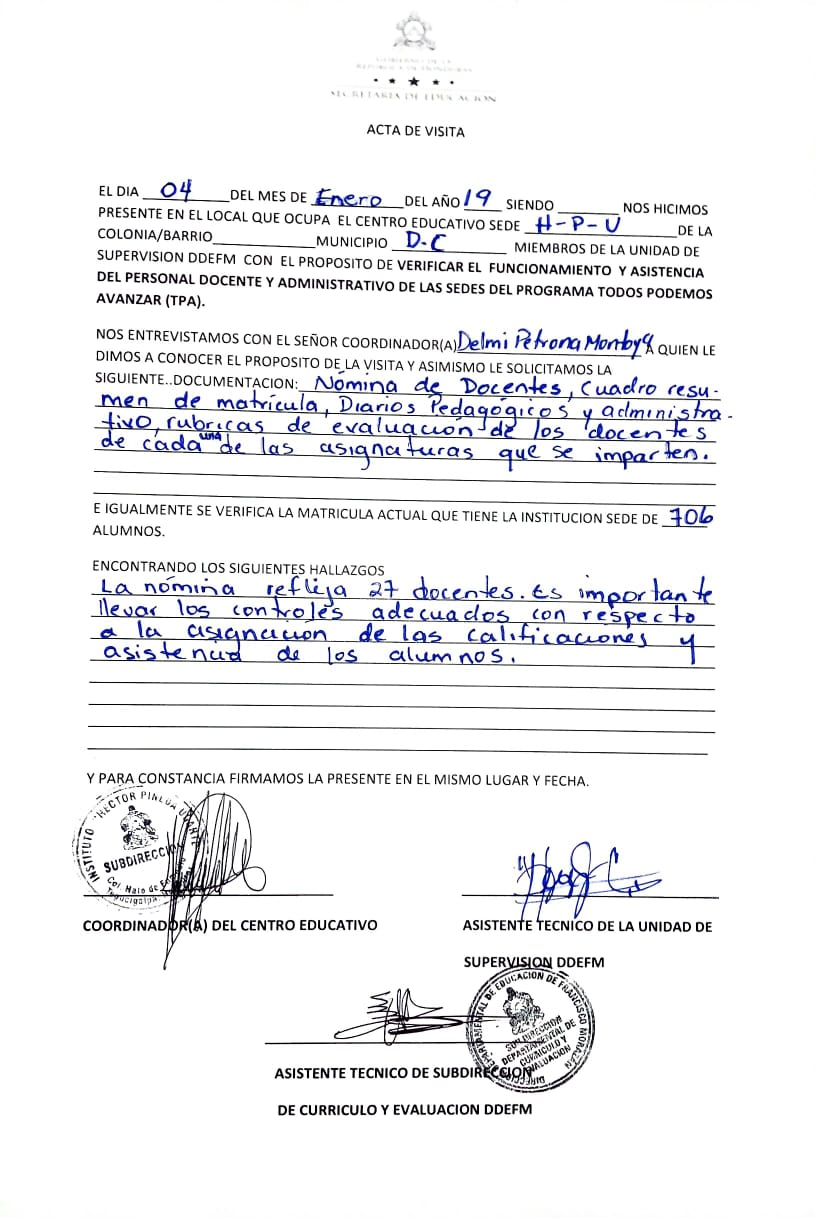 GOBIERNO DE LA
REPUBLICA DE HONDURAS
SECRETARIA DE EDUCACION
ACTA DE VISITA
EL DIA 04 DEL MES DE Enero DEL AÑO 19 SIENDO ________ NOS HICIMOS
PRESENTE EN EL LOCAL QUE OCUPA EL CENTRO EDUCATIVO SEDE H-P-U DE LA
COLONIA/BARRIO____________MUNICIPIO D.C MIEMBROS DE LA UNIDAD DE
SUPERVISION DDEFM CON EL PROPOSITO DE VERIFICAR EL FUNCIONAMIENTO Y ASISTENCIA
DEL PERSONAL DOCENTE Y ADMINISTRATIVO DE LAS SEDES DEL PROGRAMA TODOS PODEMOS
AVANZAR (TPA).
NOS ENTREVISTAMOS CON EL SEÑOR COORDINADOR(A) Delmi Petrona A QUIEN LE
DIMOS A CONOCER EL PROPOSITO DE LA VISITA Y ASIMISMO LE SOLICITAMOS LA
SIGUIENTE..DOCUMENTACION: Nómina de Docentes, Cuadro resu-
men de matrícula, Diarios Pedagógicos y administra-
tivo, rubricas de evaluación de los docentes
de cada una de las asignaturas que se imparten.
E IGUALMENTE SE VERIFICA LA MATRICULA ACTUAL QUE TIENE LA INSTITUCION SEDE DE 706
ALUMNOS.
ENCONTRANDO LOS SIGUIENTES HALLAZGOS
La nómina refleja 27 docentes. Es importante
llevar los controles adecuados con respecto
a la asignación de las calificaciones y
asistencia de los alumnos.
Y PARA CONSTANCIA FIRMAMOS LA PRESENTE EN EL MISMO LUGAR Y FECHA.
INSTITUTO HECTOR PINEDA UGARTE
SUBDIRECCION
Col. Hato de
Tegucigalpa,
COORDINADOR(A) DEL CENTRO EDUCATIVO
ASISTENTE TECNICO DE LA UNIDAD DE
SUPERVISION DDEFM
DIRECCION DEPARTAMENTAL DE EDUCACION DE FRANCISCO MORAZAN
SUB DIRECCION
DEPARTAMENTAL DE
CURRICULO Y
EVALUACION
ASISTENTE TECNICO DE SUBDIRECCION
DE CURRICULO Y EVALUACION DDEFM